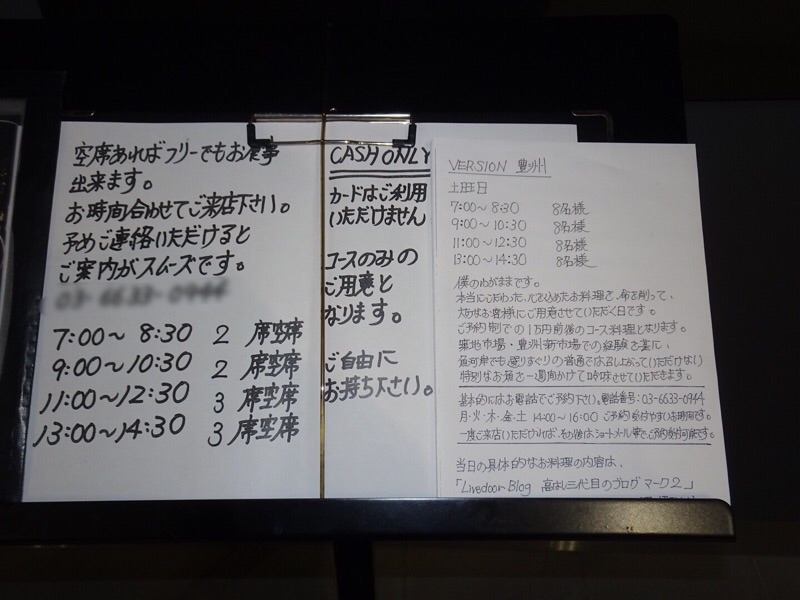 空席あればフリーでもお食事
出来ます。
お時間合わせてご来店下さい。
予めご連絡いただけると
ご案内がスムーズです。
03-6633-0944
7:00〜 8:30 2 席空席
9:00〜10:30 2 席空席
11:00〜12:30 3 席空席
13:00〜14:30 3 席空席
CASH ONLY
カードはご利用
いただけません
コースのみの
ご用意と
なります。
ご自由に
お持ち下さい。
VERSION 豊洲
土曜日
7:00〜8:30 8名様
9:00〜10:30 8名様
11:00〜12:30 8名様
13:00〜14:30 8名様
僕のわがままです。
本当にこだわった、心を込めたお料理を、命を削って、
大切なお客様にご用意させていただく日です。
ご予約制での1万円前後のコース料理となります。
築地市場・豊洲新市場での経験を基に、
魚河岸でも選りまぐりの普通では召し上がっていただけない
特別なお魚を一週間かけて吟味させていただきます。
基本的にはお電話でご予約下さい。電話番号:03-6633-0944
月・火・木・金・土 14:00〜16:00 ご予約受付やすいお時間です。
一度ご来店いただければ、その後はショートメール等でご予約受付可能です。
当日の具体的なお料理の内容は、
「Livedoor Blog 高はし三代目のブログ マーク2」